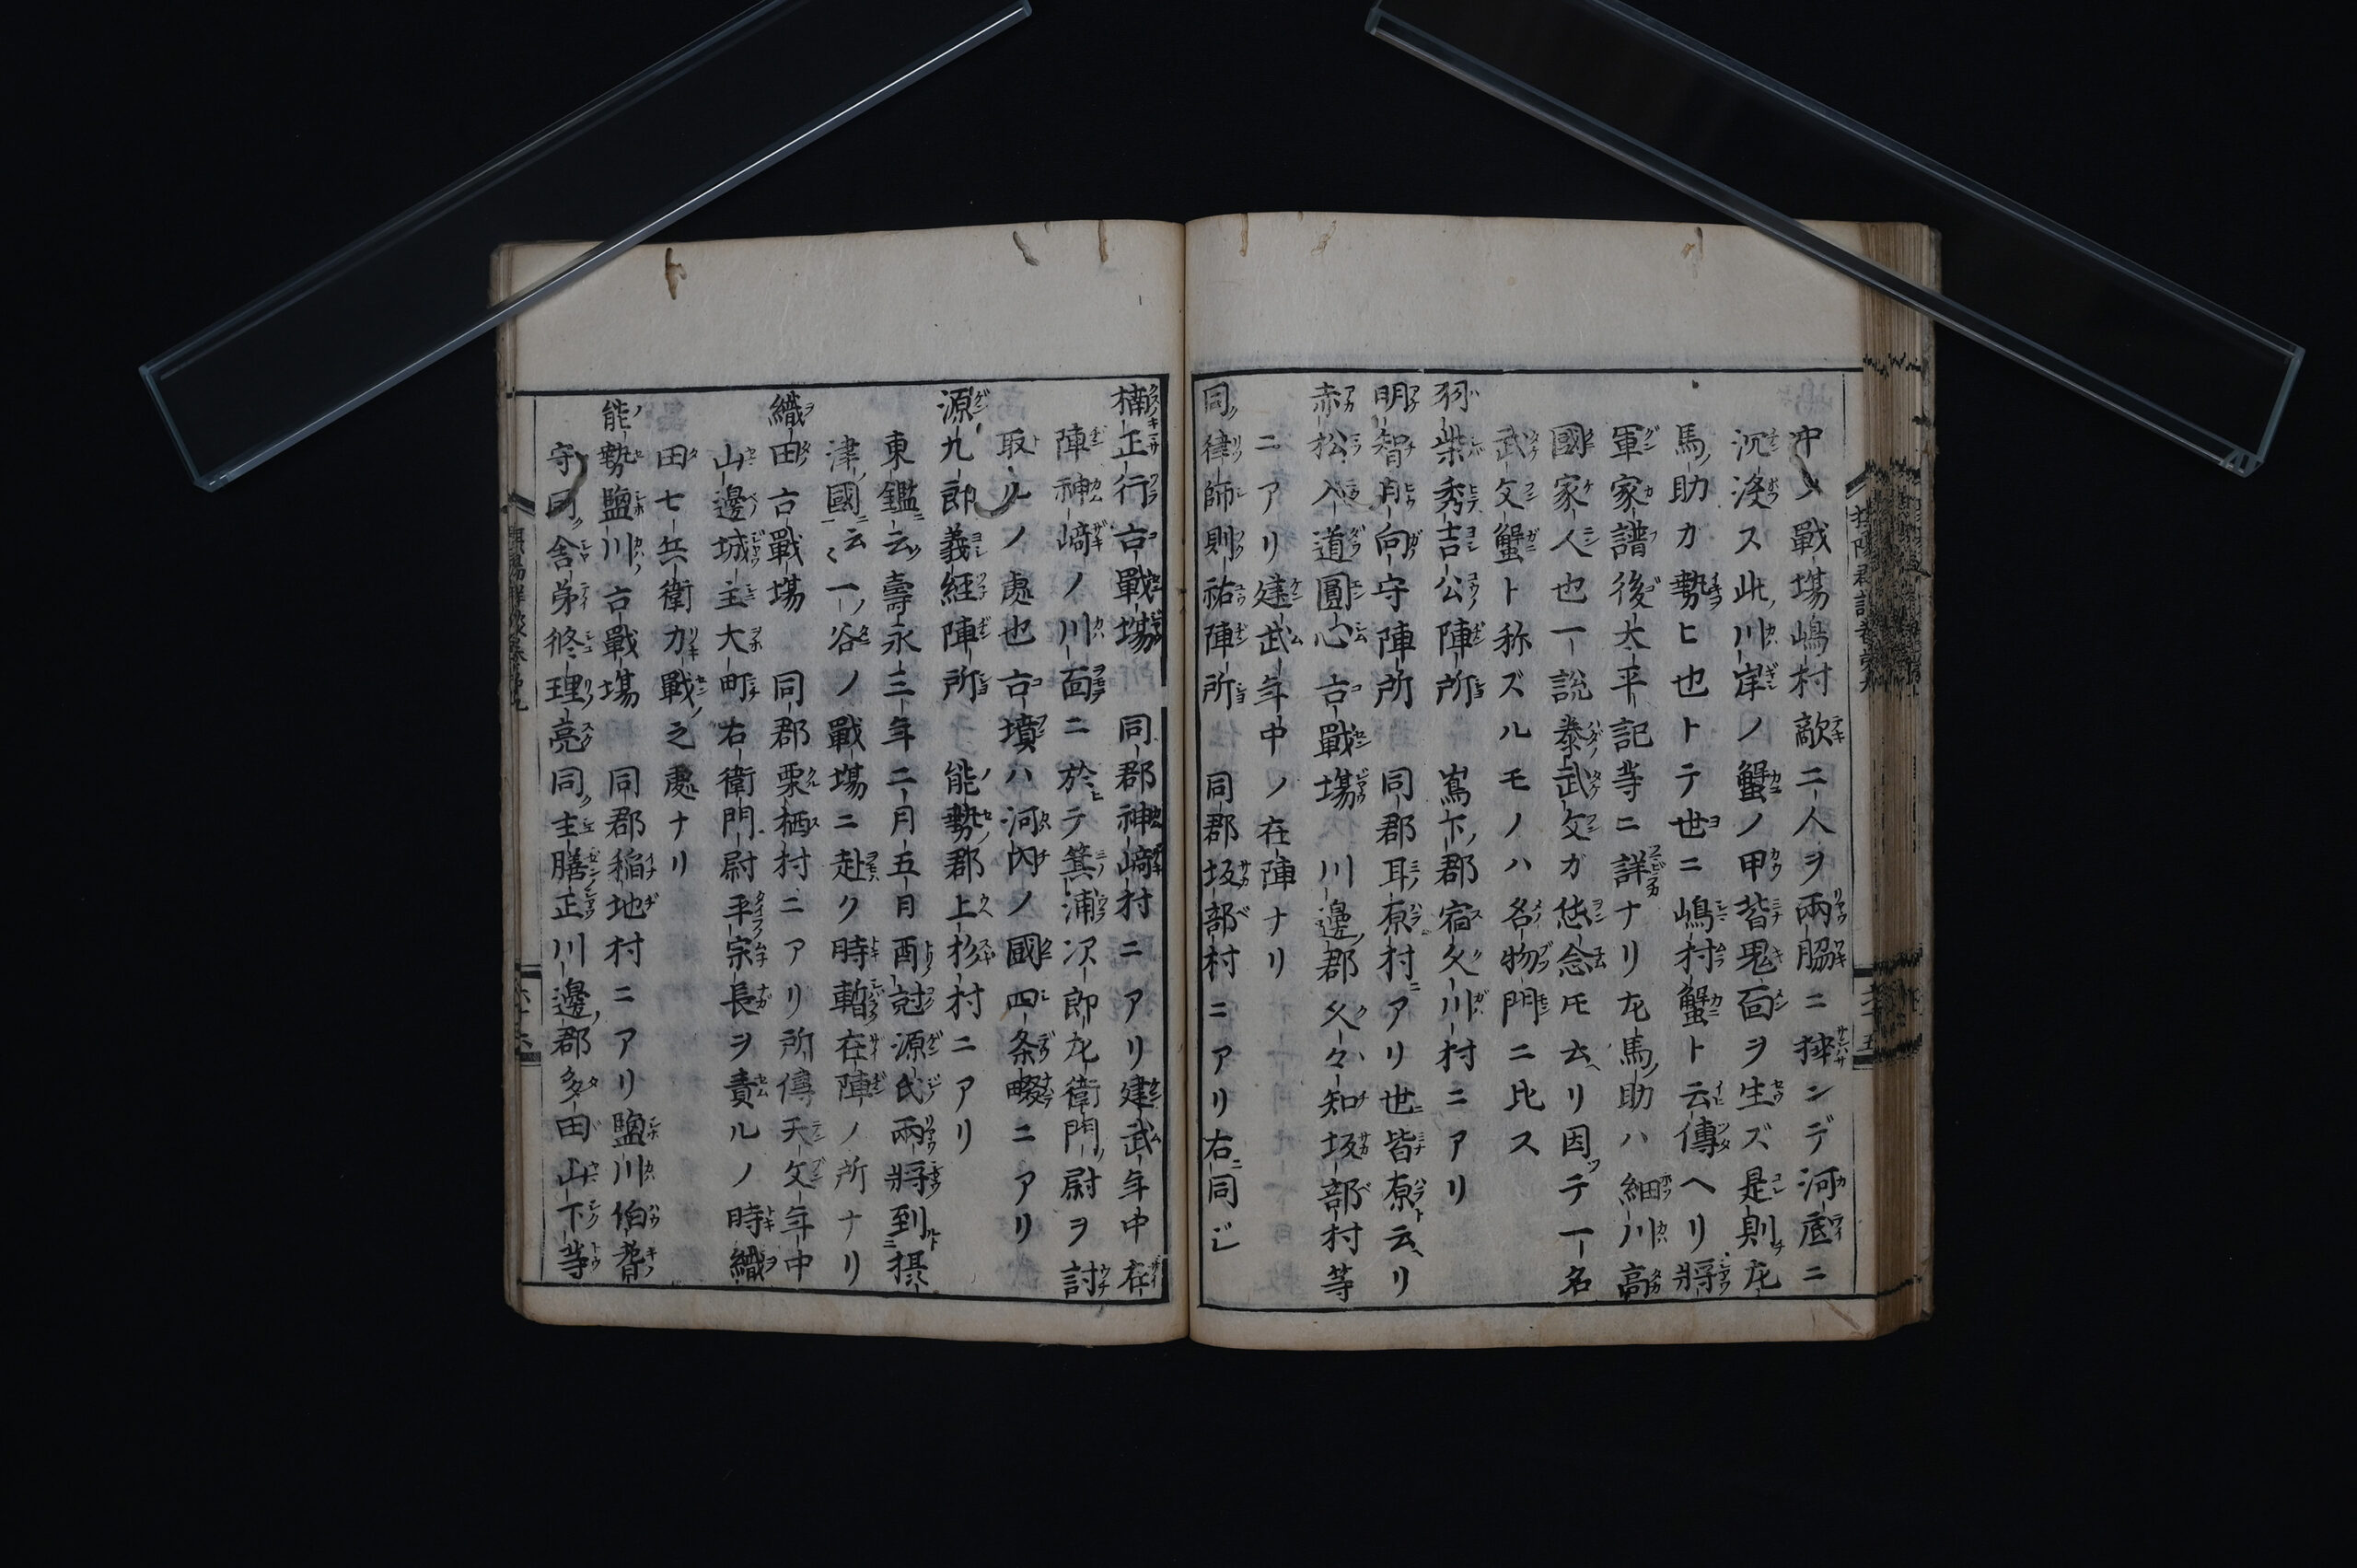 中ノ戰塲嶋村敵二人ヲ兩脇ニ挾ンデ河底ニ
沉没ス此川岸ノ蟹ノ甲皆鬼面ヲ生ズ是則左
馬助カ勢ヒ也トテ世ニ嶋村蟹ト云傳ヘリ將
軍家譜後太平記等ニ詳ナリ左馬助ハ細川高
國家人也一說秦武文ガ怨念圧云リ因テ一名
武文蟹ト称ズルモノハ名物門ニ比ス
羽柴秀吉公陣所 嶌下郡宿久川村ニアリ
明智日向守陣所 同郡耳原村ニアリ世皆原ト云リ
赤松入道圓心古戰塲 川邊郡久々知坂部村等
ニアリ建武年中ノ在陣ナリ
同律師則祐陣所 同郡坂部村ニアリ右ニ同ジ
楠正行古戰塲 同郡神﨑村ニアリ建武年中在
陣神﨑ノ川面ニ於テ箕浦次郎左衛門尉ヲ討
取ルノ處也古墳ハ河内ノ國四条畷ニアリ
源九郎義経陣所 能勢郡上杉村ニアリ
東鑑云壽永三年二月五日酉尅源氏兩將到摂
津國云〻一ノ谷ノ戰塲ニ赴ク時暫在陣ノ所ナリ
織田古戰塲 同郡栗栖村ニアリ所傳天文年中
山邊城主大町右衛門尉平宗長ヲ責ルノ時織
田七兵衛力戰之處ナリ
能勢鹽川古戰塲 同郡稲地村ニアリ鹽川伯耆
守同舎弟修理亮同主膳正川邊郡多田山下等